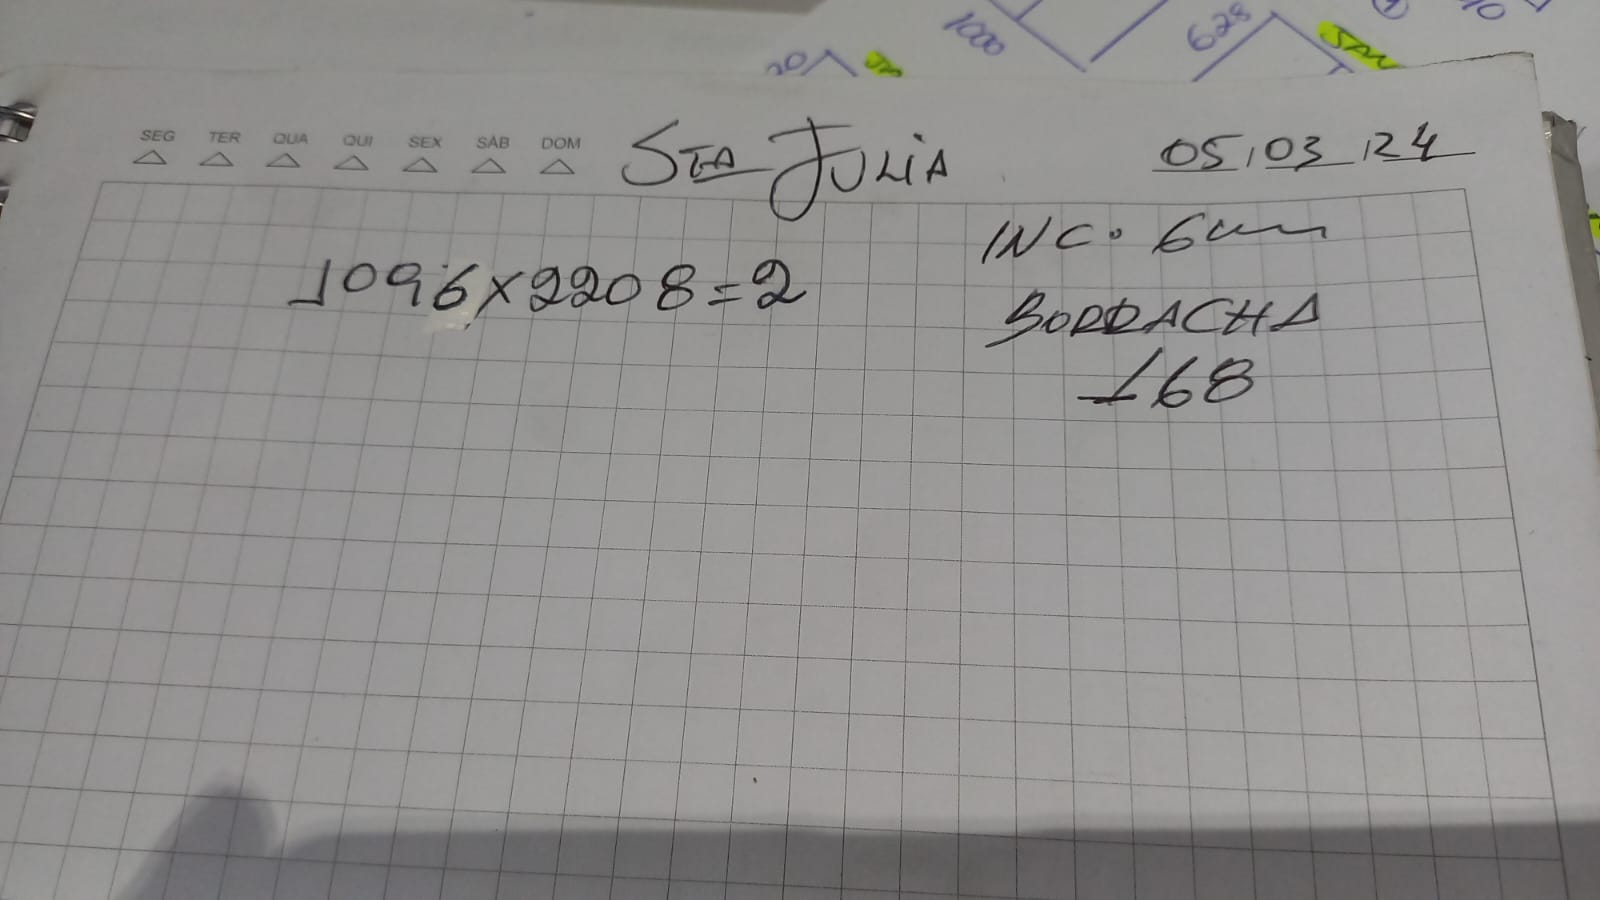 1000
628
SEG TER QUA QUI SEX SÁB DOM
STA JULIA
05/03/24
1096x2208=2
INC. 6mm
BORRACHA
168